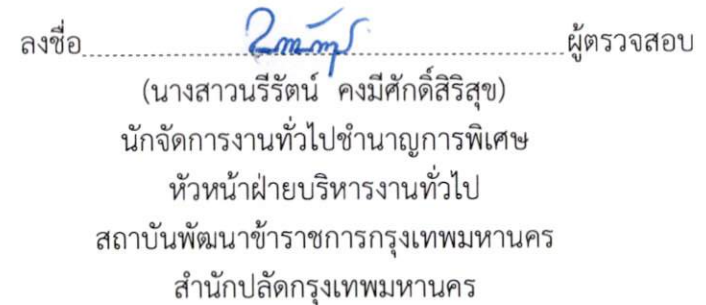 ลงชื่อ........................................................ผู้ตรวจสอบ
(นางสาวนรีรัตน์ คงมีศักดิ์สิริสุข)
นักจัดการงานทั่วไปชำนาญการพิเศษ
หัวหน้าฝ่ายบริหารงานทั่วไป
สถาบันพัฒนาข้าราชการกรุงเทพมหานคร
สำนักปลัดกรุงเทพมหานคร